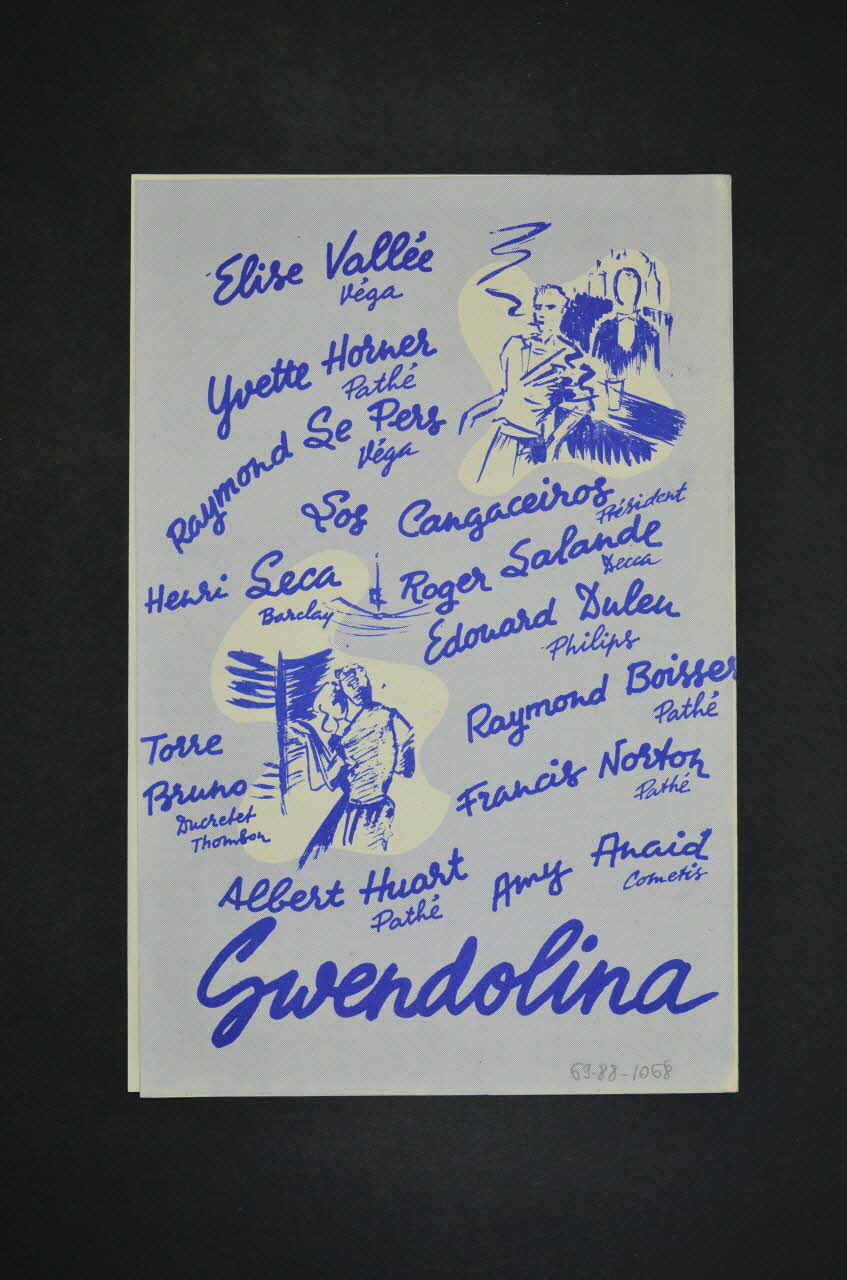 Elise Vallée
Véga
Yvette Horner
Pathé
Raymond Le Pers
Véga
Los Cangaceiros
Président
Henri Leca
Barclay
Roger Lalande
Decca
Edouard Duleu
Philips
Raymond Boisser
Pathé
Torre
Bruno
Ducretet
Thomson
Francis Norton
Pathé
Albert Huart
Pathé
Amy Anaid
Cometis
Gwendolina
69-88-1068